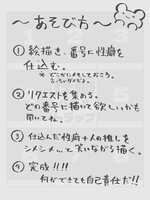 〜あそびカ〜
① 絵描き、番号に性癖を
仕込む。
※ どこかにメモしておこう。
② リクエストを集める。
どの番号に描いて欲しいかも
聞いてね。
③ 仕込んだ性癖+人の推しを
シメシメ…て笑いながら描く。
④ 完成!!!!
何ができても自己責任だ!!